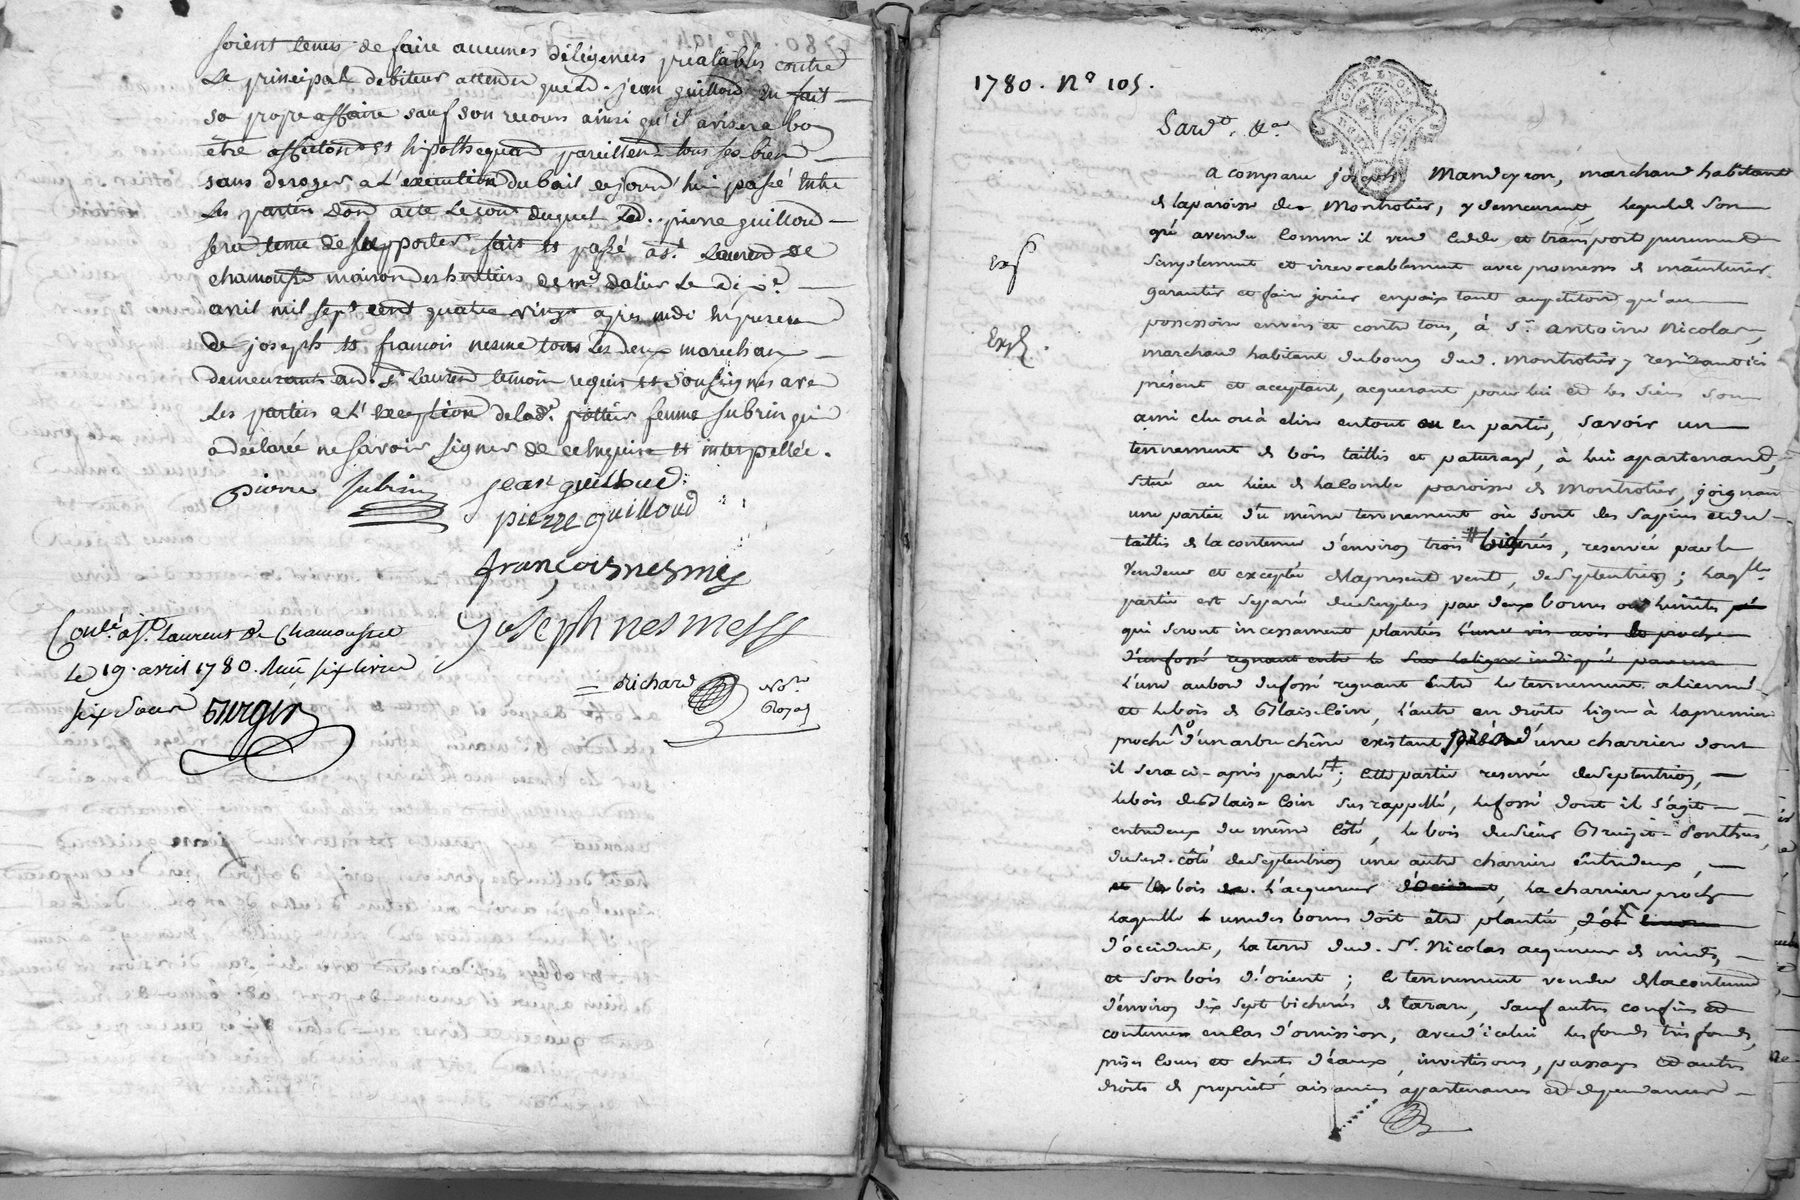 soient tenus de faire aucunes déligences préalables contre
Le principal debiteur attendu que led. jean guilloud en fait
sa propre affaire sauf son recours ainsi qu'il avisera bon
être affectant et hipothequant pareillemt tous ses biens
sans deroger a L'execution du bail cejourd'hui passé entre
Les parties dont acte Le cout duquel Led. pierre guilloud
sera tenu de supporter fait et passé a st. Laurent de
chamousset maison des heritiers de me dalin Le
avril mil sept cent quatre vingt apres midi en presence
de joseph et francois nesme tous Les deux marechaux
demeurants aud. st Laurent temoins requis et soussignés avec
Les parties a L'exception de lade. pottier femme subrin qui
a déclarée ne savoir signer de ce enquise et interpellée.
pierre subrin jean guilloud
pierre guilloud
françois nesmes
joseph nesme
Conlé. a st. Laurent de Chamousset
Le 19. avril 1780. Reçu six livres
six sous
Richard No.re Royal
1780. N° 105.
Pardt. &a
a comparu joseph Mandeyron, marchand habitant
de la paroisse de Montrotier, y demeurant, lequel de son
gré a vendu comme il vend cedde et transport purement
simplement et irrevocablement avec promesse de maintenir
garantir et faire jouir en paix tant au petitoire qu'au
possessoire envers et contre tous, à Sr. antoine Nicolas,
marchand habitant du bourg dud. Montrotier y residant ici
présent et acceptant, acquerant pour lui et les siens son
ami elu ou à elire en tout ou en partie, savoir un
tennement de bois taillis et paturage, à lui apartenant,
situé au lieu de la combe paroisse de Montrotier, joignant
une partie du même tennement où sont des sapins et du
taillis de la contenue d'environ trois bicherées, reservée par le
Vendeur et exceptée de la presente vente, de septentrion; laqlle
partie est separée du surplus par deux bornes ou limites
qui seront incessament plantées l'une vis avis le proche
d'un fossé regnant entre le
L'une au bord du fossé regnant entre le tennement aliené
et le bois de Blaise Coin, L'autre en droite ligne à la premiere
proche d'un arbre chêne existant près d'une charriere dont
il sera ci-après parlé; cette partie reservée de septentrion,
le bois de Blaise Coin sus rappellé, le fossé dont il s'agit
entredeux du même côté, le bois du sieur
dud. côté de septentrion une autre charriere entredeux,
et le bois de L'acquereur d'occident, la charriere proche
laquelle l'une des bornes doit être plantée,
d'occident, la terre dud. Sr. Nicolas acquereur de midi,
et son bois d'orient; le tennement vendu de la contenue
d'environ dix sept bicherées de tarare, sauf autres confins et
contenues en cas d'omission, avec d'icelui les fonds tres fonds,
prises cours et chute d'eaux, investisons, passages et autres
droits de propriété aisances apartenances et dependances